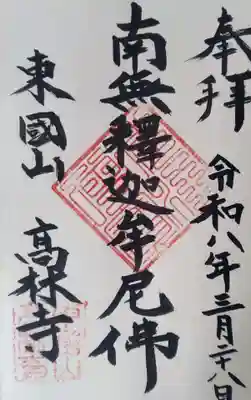 奉拝
令和八年三月二十八日
南無釋迦牟尼佛
東國山 高林寺